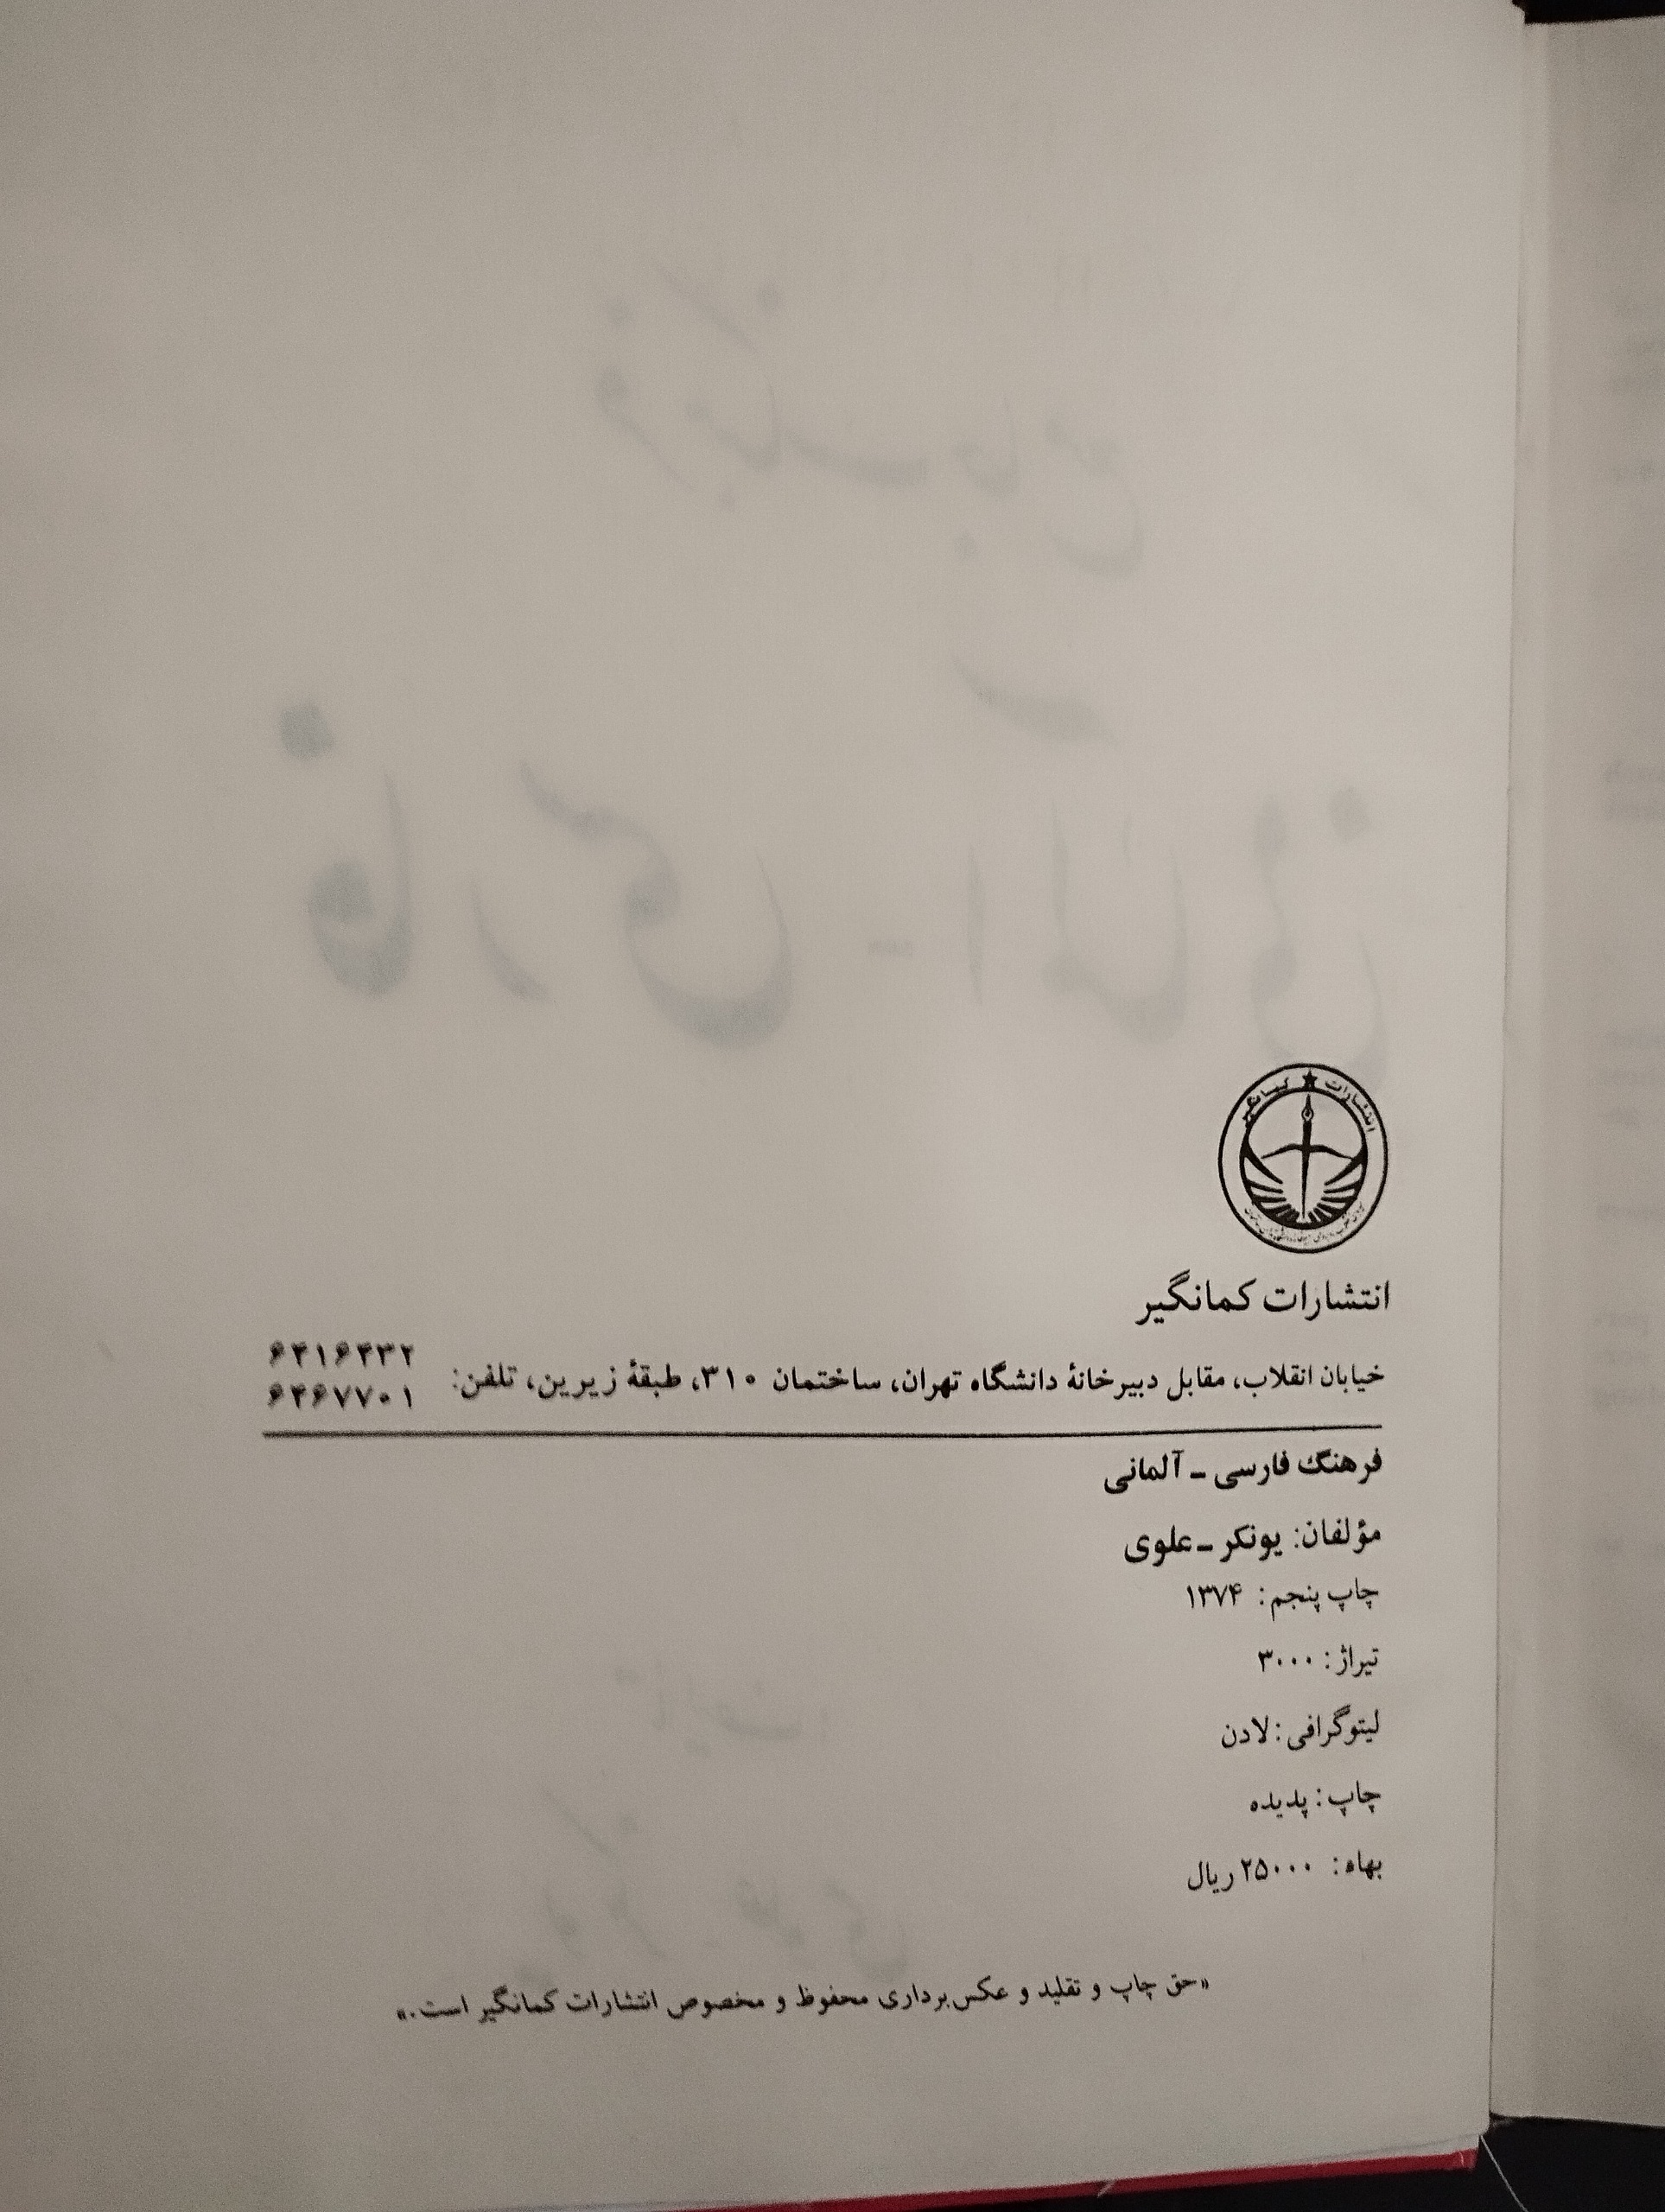 انتشارات کمانگیر
انتشارات کمانگیر
خیابان انقلاب، مقابل دبیرخانهٔ دانشگاه تهران، ساختمان ۳۱۰، طبقهٔ زیرین، تلفن:
۶۴۱۶۴۳۲
۶۴۶۷۷۰۱
فرهنگ فارسی ـ آلمانی
مؤلفان: یونکر ـ علوی
چاپ پنجم: ۱۳۷۴
تیراژ: ۳۰۰۰
لیتوگرافی: لادن
چاپ: پدیده
بهاء: ۲۵۰۰۰ ریال
«حق چاپ و تقلید و عکس‌برداری محفوظ و مخصوص انتشارات کمانگیر است.»